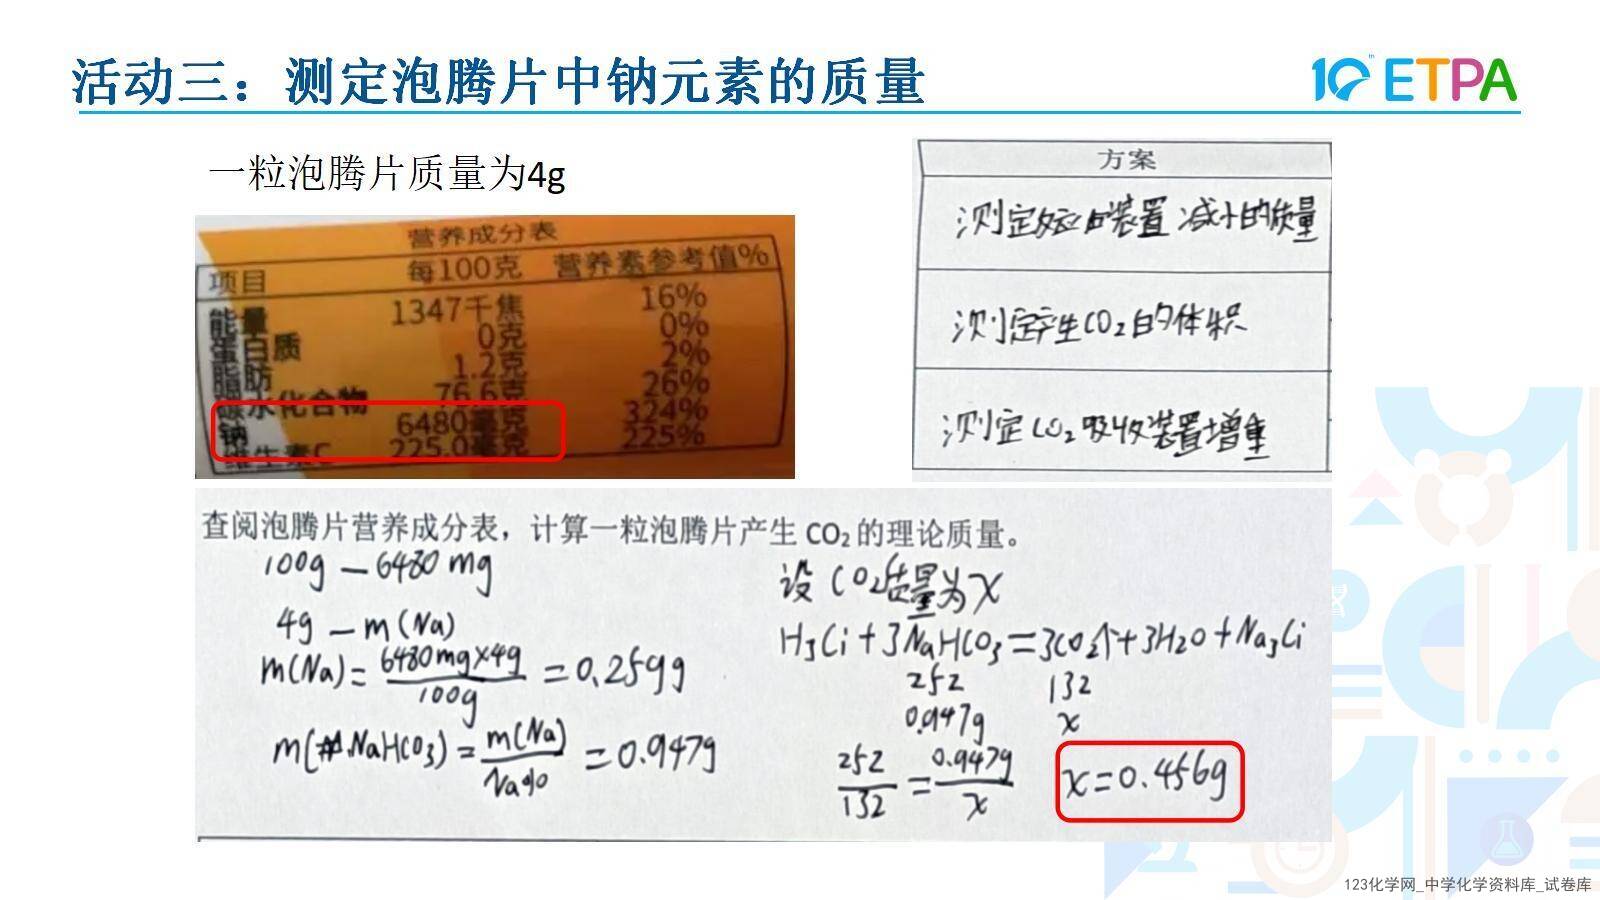 活动三：测定泡腾片中钠元素的质量
10 ETPA
一粒泡腾片质量为4g
营养成分表
项目 每100克 营养素参考值%
能量 1347千焦 16%
蛋白质 0克 0%
脂肪 1.2克 2%
碳水化合物 76.6克 26%
钠 6480毫克 324%
维生素C 225.0毫克 225%
方案
测定反应后装置减小的质量
测定产生CO₂的体积
测定CO₂吸收装置增重
查阅泡腾片营养成分表，计算一粒泡腾片产生 CO₂ 的理论质量。
100g — 6480 mg
4g — m(Na)
m(Na) = 6480mg×4g / 100g = 0.259g
m(NaHCO₃) = m(Na) / Na% = 0.947g
设 CO₂质量为x
H₃Ci + 3NaHCO₃ = 3CO₂↑ + 3H₂O + Na₃Ci
252 132
0.947g x
252 / 132 = 0.947g / x
x = 0.456g
123化学网_中学化学资料库_试卷库